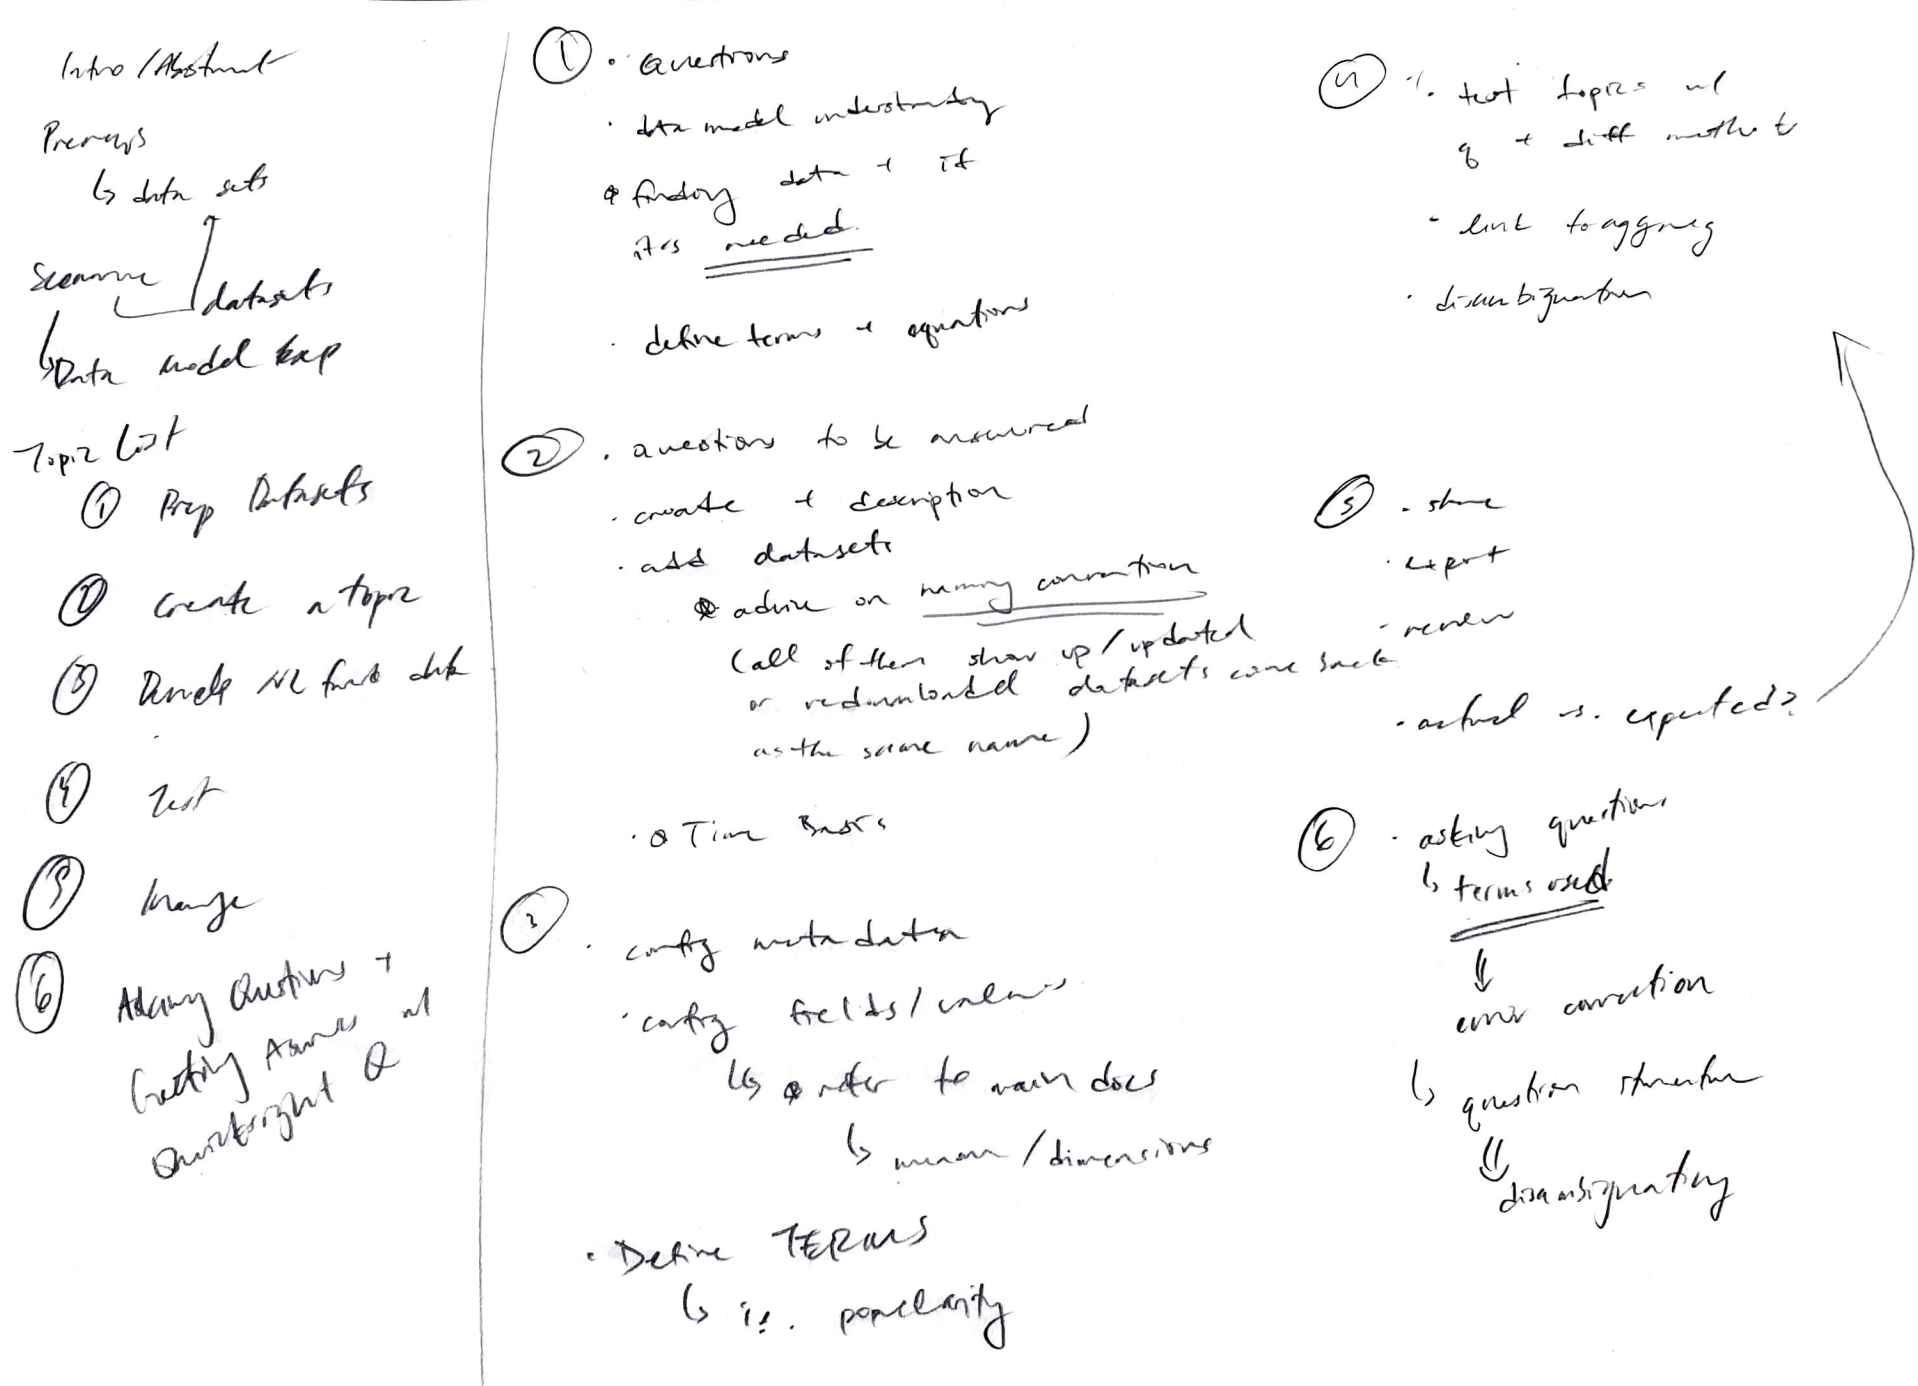 Intro / Abstract
Prereqs
↳ data sets
Scenario
datasets
↳ Data model
Topic List
① Prep Datasets
② Create a topic
③ NL data
④ Test
⑤ Manage
⑥ Asking Questions +
Getting Answers w/
Quicksight Q
① · Questions
· data model understanding
· finding data + if
it's needed.
· define terms + equations
② · questions to be answered
· create + description
· add datasets
advise on naming convention
(all of them show up / updated
or redownloaded datasets come back
as the same name)
· Time Basis
③
· config metadata
· config fields / values
↳ refer to main docs
↳ measure / dimensions
· Define TERMS
↳ i.e. popularity
④ · test topics w/
q + diff methods
· link to aggreg
· disambiguation
⑤ · share
· export
· review
· actual vs. expected?
⑥ · asking questions
↳ terms used
⇓
error correction
↳ question structure
⇓
disambiguating